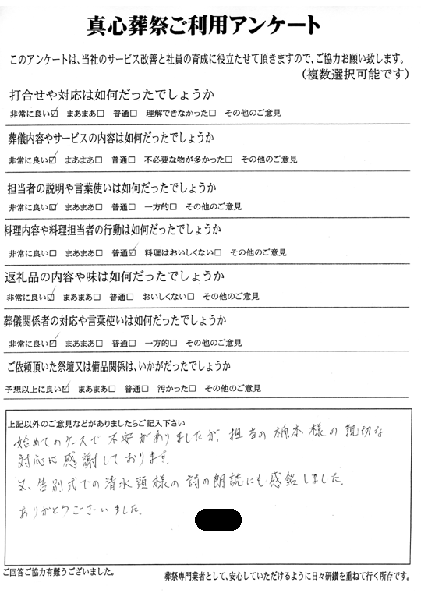 真心葬祭ご利用アンケート
このアンケートは、当社のサービス改善と社員の育成に役立たせて頂きますので、ご協力お願い致します。
(複数選択可能です)
打合せや対応は如何だったでしょうか
非常に良い☑ まあまあ□ 普通□ 理解できなかった□ その他のご意見
葬儀内容やサービスの内容は如何だったでしょうか
非常に良い☑ まあまあ□ 普通□ 不必要な物が多かった□ その他のご意見
担当者の説明や言葉使いは如何だったでしょうか
非常に良い☑ まあまあ□ 普通□ 一方的□ その他のご意見
料理内容や料理担当者の行動は如何だったでしょうか
非常に良い□ まあまあ□ 普通☑ 料理はおいしくない□ その他のご意見
返礼品の内容や味は如何だったでしょうか
非常に良い☑ まあまあ□ 普通□ おいしくない□ その他のご意見
葬儀関係者の対応や言葉使いは如何だったでしょうか
非常に良い☑ まあまあ□ 普通□ 一方的□ その他のご意見
ご依頼頂いた祭壇又は備品関係は、いかがだったでしょうか
予想以上に良い☑ まあまあ□ 普通□ 汚かった□ その他のご意見
上記以外のご意見などがありましたらご記入下さい
始めてのケースで不安がありましたが、担当の 様の親切な
対応に感謝しております。
又、告別式での清水 様の詩の朗読にも感銘しました。
ありがとうございました。
ご回答ご協力有難うございました。
葬祭専門業者として、安心していただけるように日々研鑽を重ねて行く所存です。